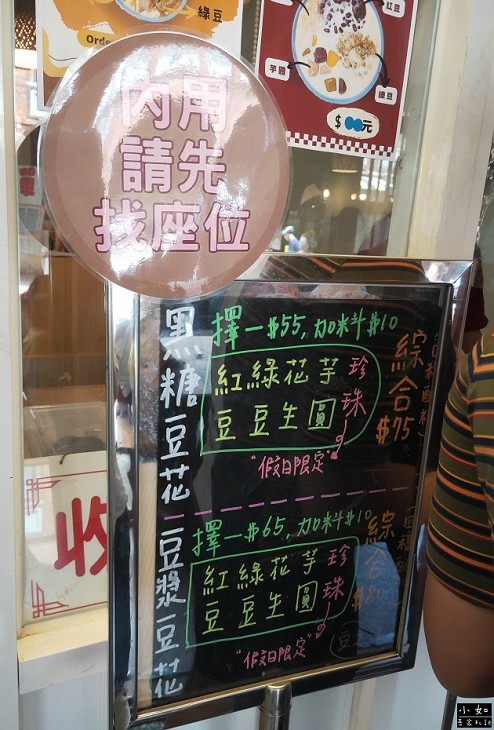 綠豆
Orde
紅豆
芋圓
綠豆
$ 元
內用
請先
找座位
黑糖豆花
擇一$55,加料$10
紅 綠 花 芋 珍
豆 豆 生 圓 珠
"假日限定"
綜合
$75
豆漿豆花
擇一$65,加料$10
紅 綠 花 芋 珍
豆 豆 生 圓 珠
"假日限定"
綜合
豆
收
小如